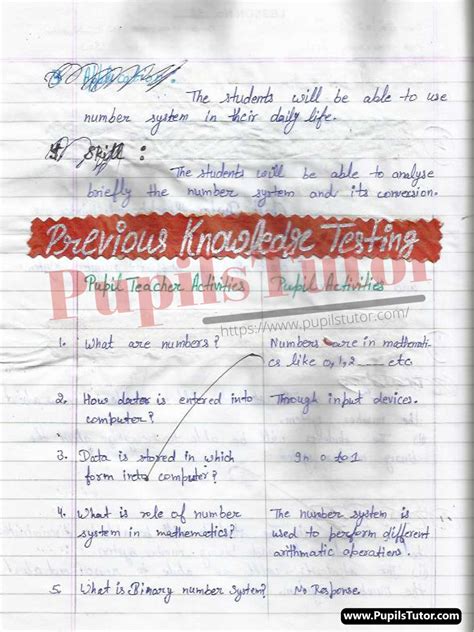 The students will be able to use
number system in their daily life.
Skill :
The students will be able to analyse
briefly the number system and its conversion.
Previous Knowledge Testing
Pupil Teacher Activities Pupil Activities
PupilsTutor
https://www.pupilstutor.com/
1. What are numbers? Numbers are in mathemati-
cs like 0,1,2 ___ etc.
2. How data is entered into Through input devices.
computer?
3. Data is stored in which In 0 to 1
form into computer?
4. What is role of number The number system is
system in mathematics? used to perform different
arithmatic operations.
5. What is Binary number system? No Response.
www.PupilsTutor.com